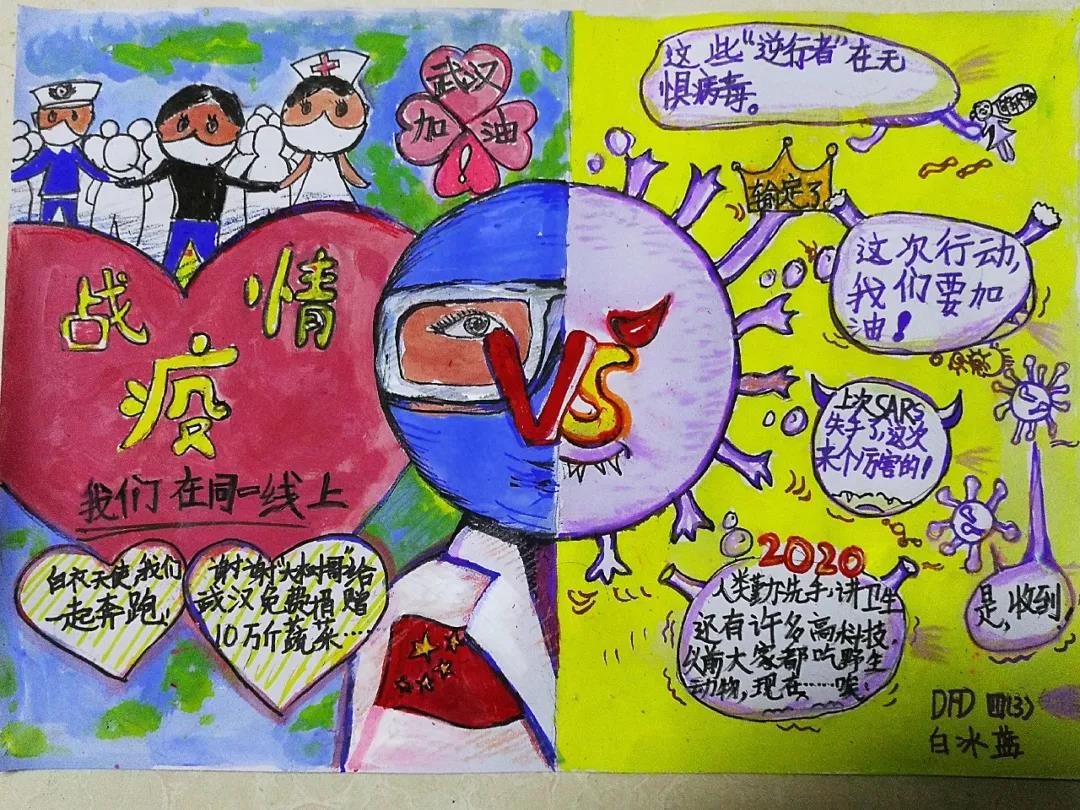 武汉
加油
!
战疫情
我们在同一线上
白衣天使,我们
一起奔跑,
谢谢“大树哥”给
武汉免费捐赠
10万斤蔬菜……
VS
这些“逆行者”在无
惧病毒。
输定了
这次行动,
我们要加
油!
上次SARS
失手了,这次
来个厉害的!
是,收到
2020
人类勤洗手,讲卫生
还有许多高科技.
以前大家都吃野生
动物,现在……唉.
DFD 四(3)
白冰蓝